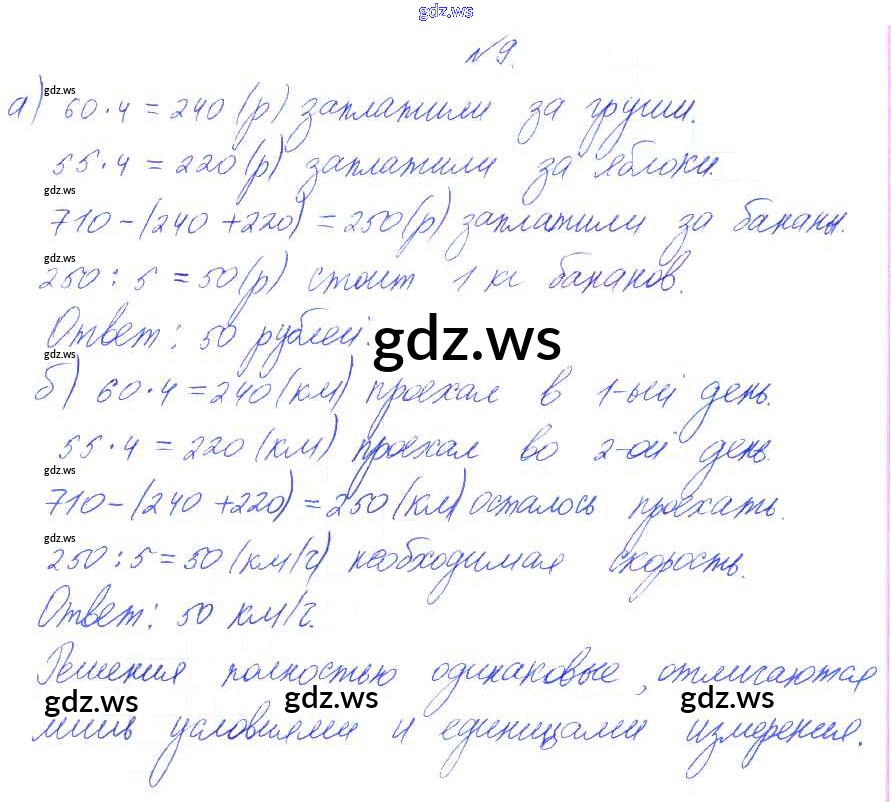 gdz.ws
№9.
gdz.ws
а) 60·4 = 240 (р) заплатили за груши.
55·4 = 220 (р) заплатили за яблоки.
gdz.ws
710-(240+220) = 250 (р) заплатили за бананы.
gdz.ws
250 : 5 = 50 (р) стоит 1 кг бананов.
Ответ: 50 рублей.
gdz.ws
gdz.ws
б) 60·4 = 240 (км) проехал в 1-ый день.
55·4 = 220 (км) проехал во 2-ой день.
gdz.ws
710-(240+220) = 250 (км) осталось проехать.
gdz.ws
250 : 5 = 50 (км/ч) необходимая скорость.
Ответ: 50 км/ч.
Решения полностью одинаковые, отличаются
gdz.ws gdz.ws gdz.ws
лишь условиями и единицами измерения.